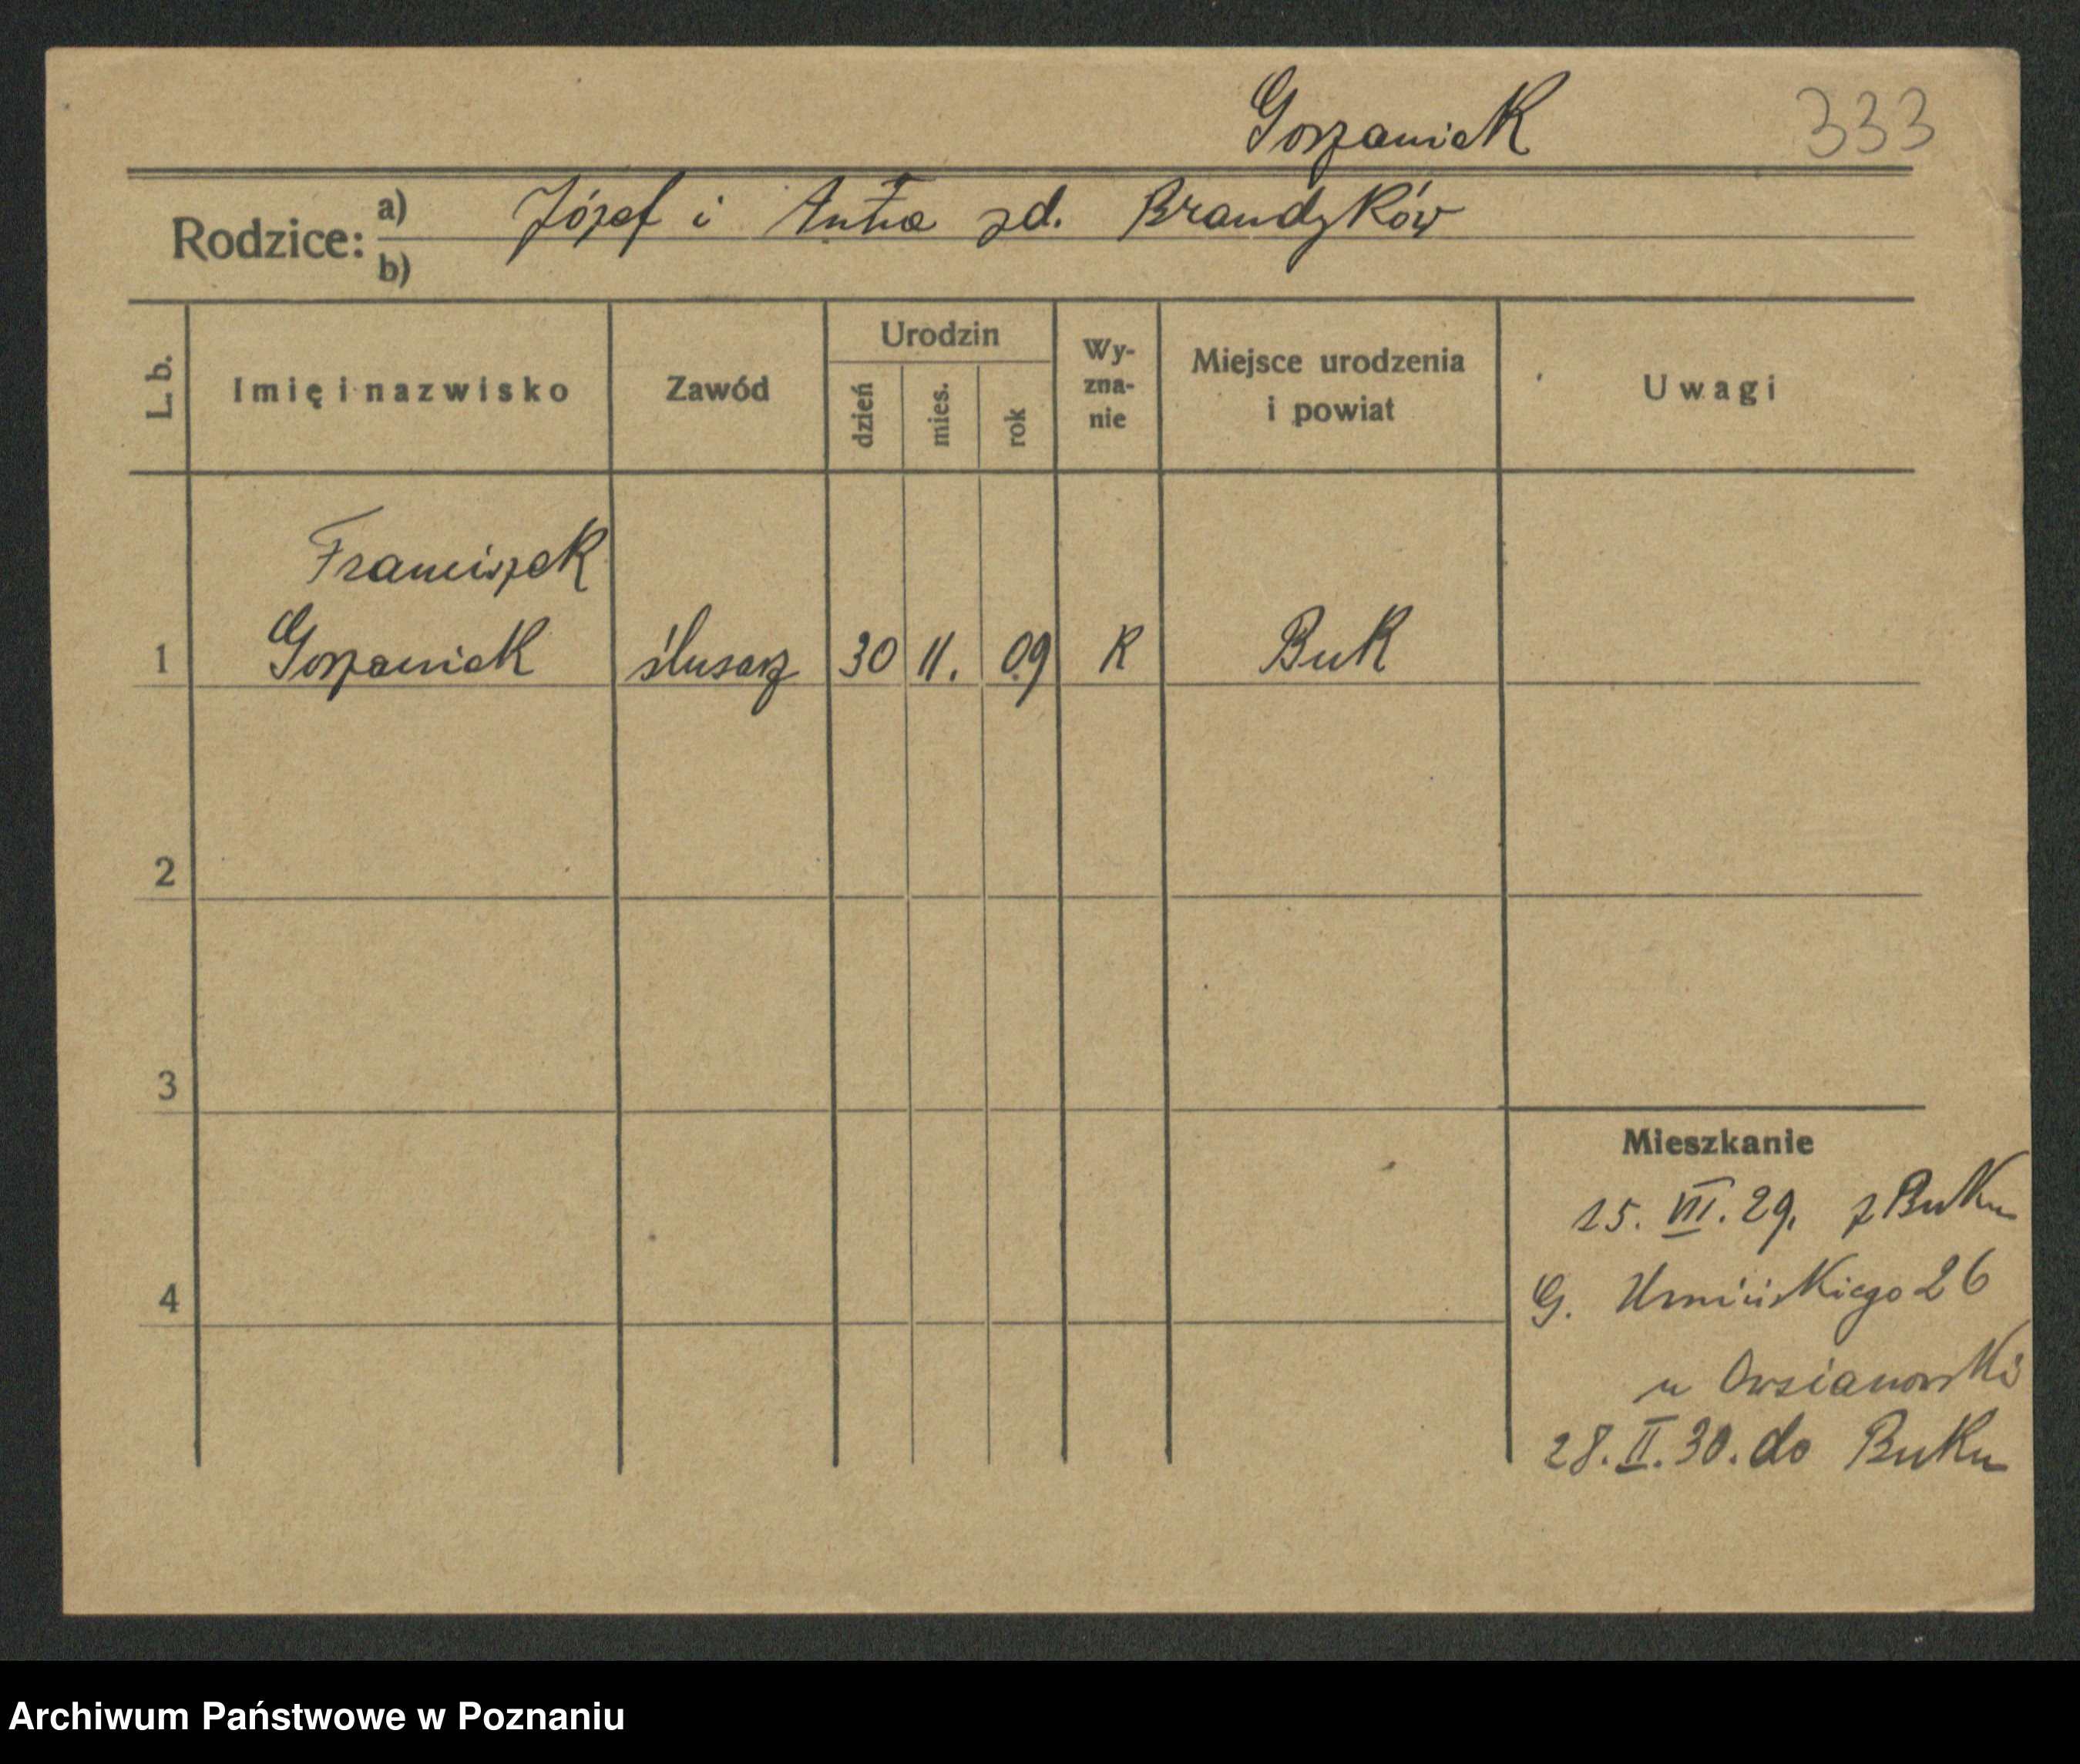 Goszaniek 333
Rodzice: a) Józef i Anna zd. Brandyków
b)
L. b. Imię i nazwisko Zawód Urodzin dzień mies. rok Wy-zna-nie Miejsce urodzenia i powiat Uwagi
Franciszek
1 Goszaniek ślusarz 30 11. 09 K Buk
2
3
Mieszkanie
15. VII. 29. z Buku
4 G. Umińskiego 26
u Owsianowski
28. II. 30. do Buku
Archiwum Państwowe w Poznaniu